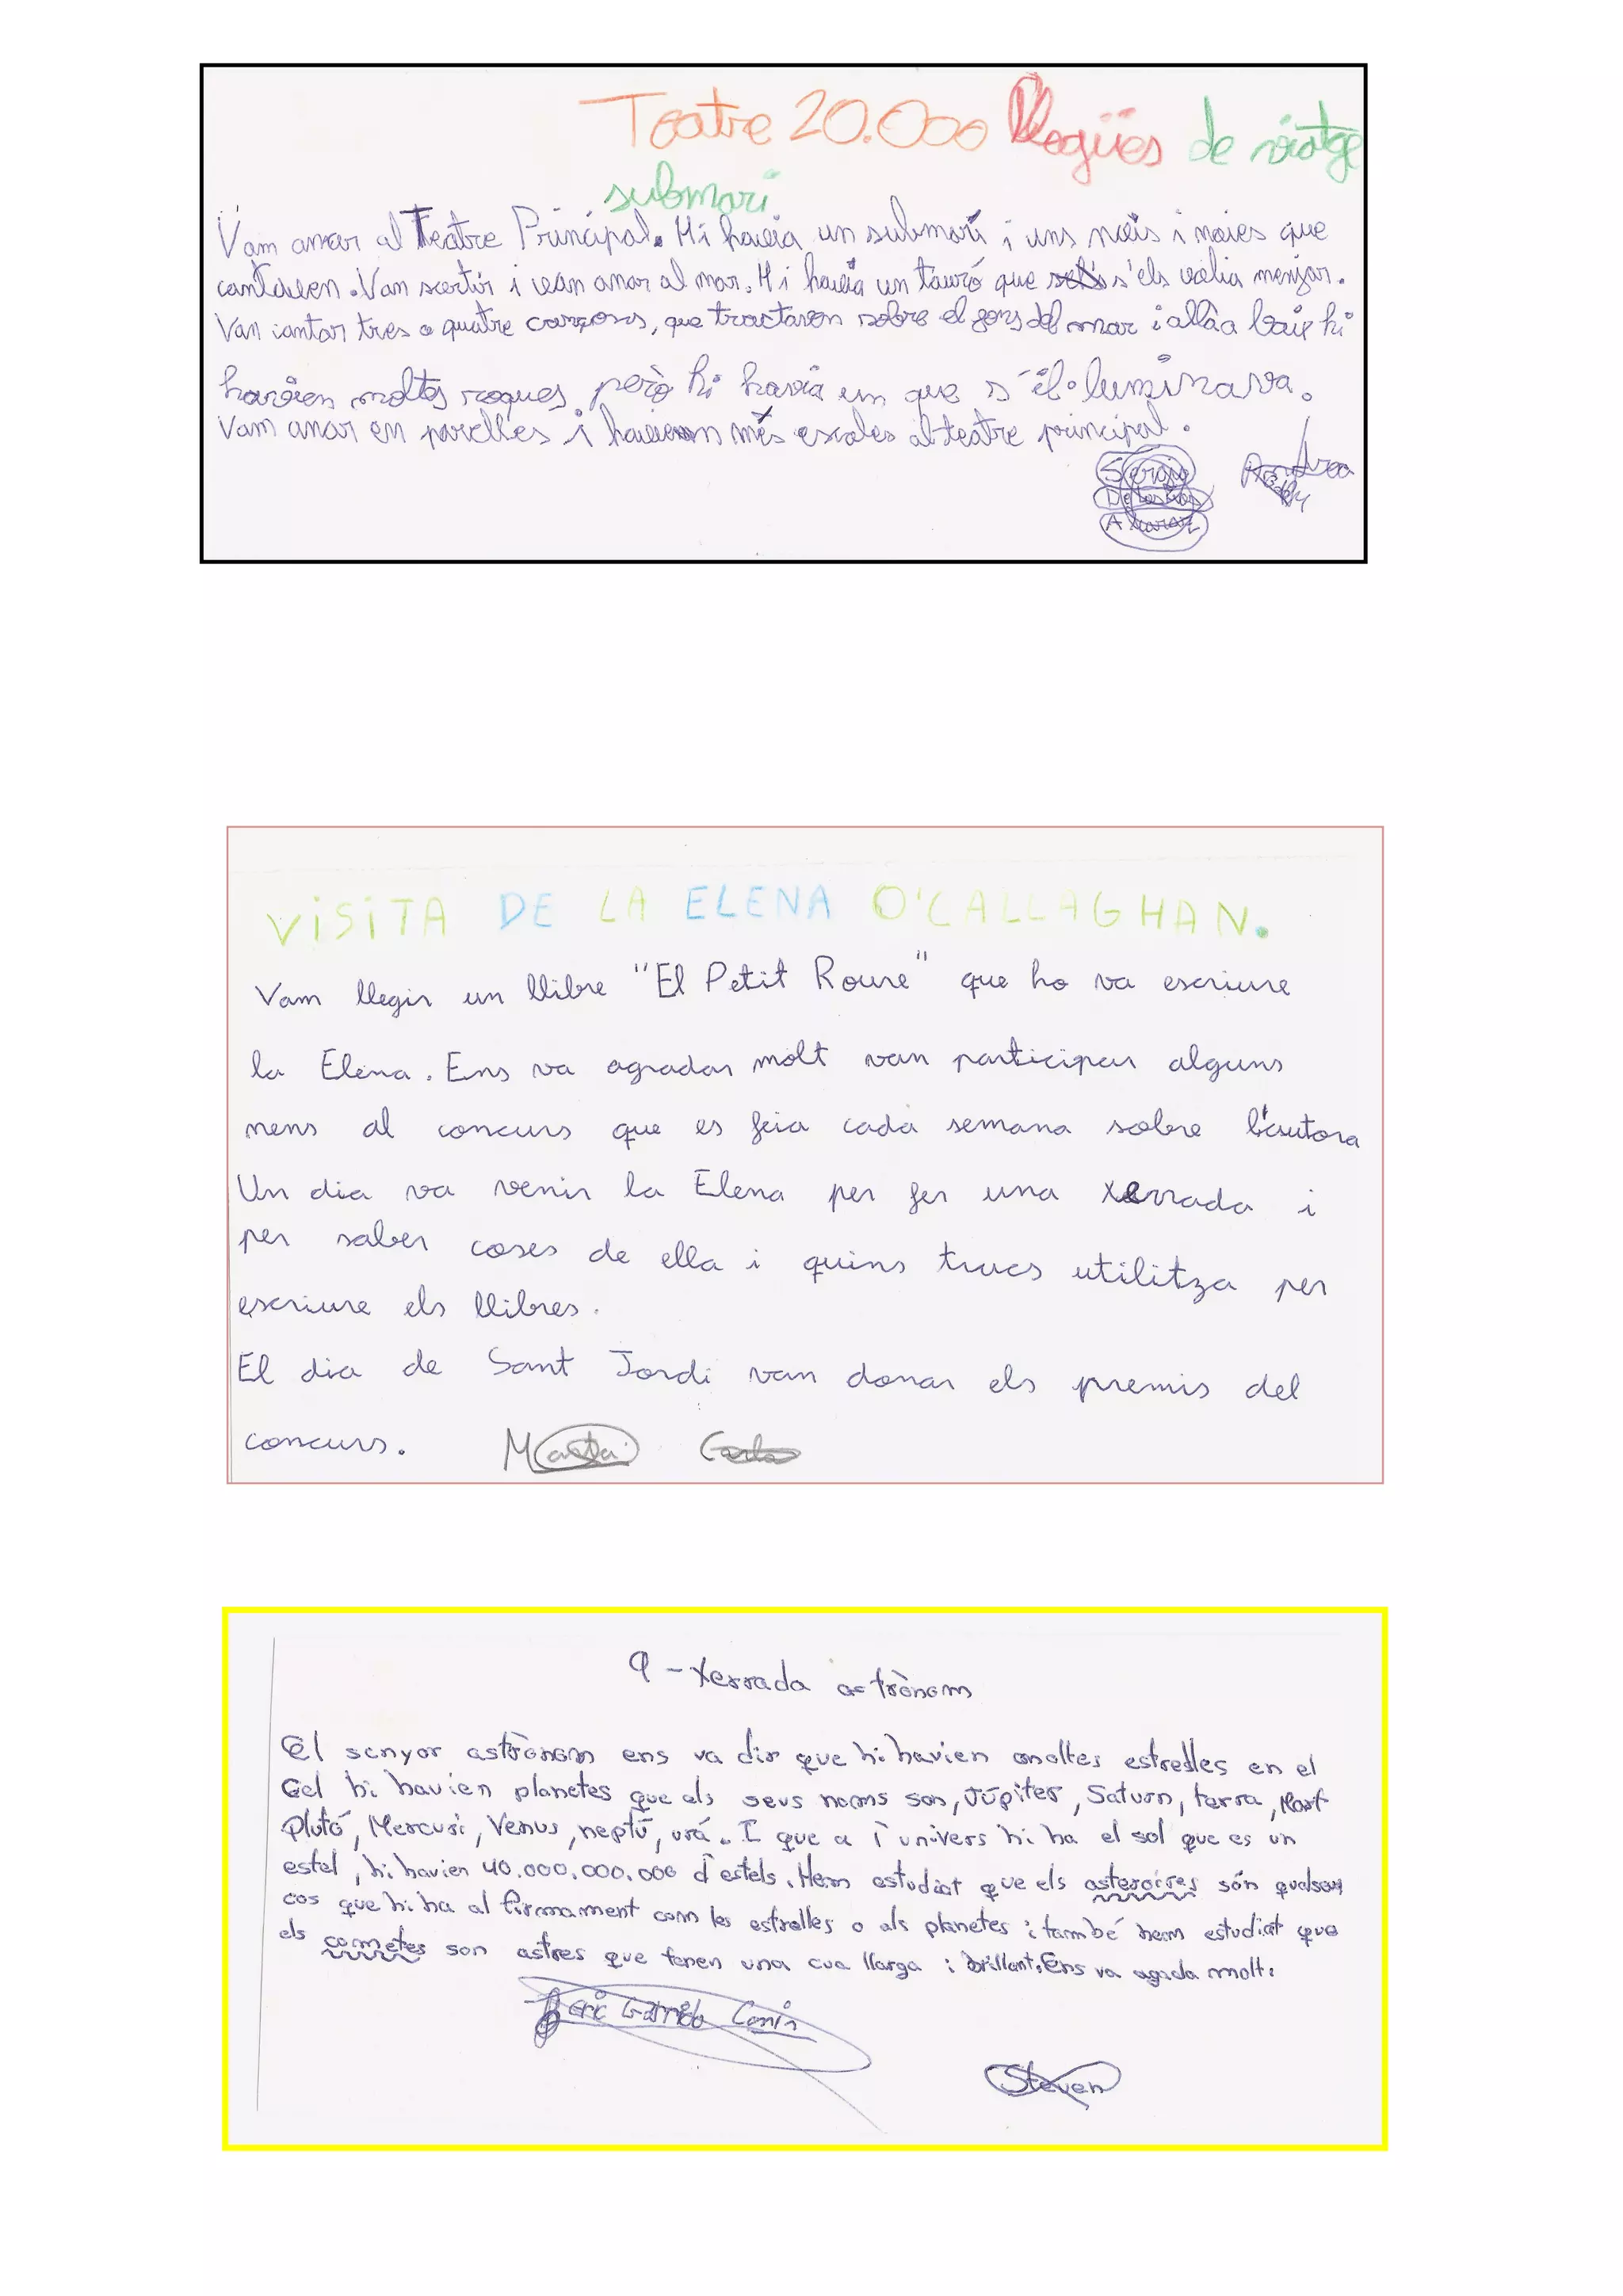 Teatre 20.000 llegües de viatge
submari
Vam anar al Teatre Principal. Hi havia un submarí i uns nois i noies que
cantaven. Van sortir i van anar al mar. Hi havia un tauró que s'els volia menjar.
Van cantar tres o quatre cançons, que tractaven sobre el fons del mar i allà a baix hi
havien moltes roques però hi havia un que s'il·luminava.
Vam anar en parelles i havien més escoles al teatre principal.
Sergio Andrea
De las Alvarez
VISITA DE LA ELENA O'CALLAGHAN.
Vam llegir un llibre "El Petit Roure" que ho va escriure
la Elena. Ens va agradar molt van participar alguns
nens al concurs que es feia cada semana sobre l'autora
Un dia va venir la Elena per fer una xerrada i
per saber coses de ella i quins trucs utilitza per
escriure els llibres.
El dia de Sant Jordi van donar els premis del
concurs. Marta Carla
9 - Xerrada astrònom
El senyor astrònom ens va dir que hi havien moltes estrelles en el
Cel hi havien planetes que els seus noms son, Júpiter, Saturn, terra, Mart
Plutó, Mercuri, Venus, neptú, urá. I que a l'univers hi ha el sol que es un
estel, hi havien 40.000.000.000 d'estels. Hem estudiat que els asteroires són qualsevol
cos que hi ha al firmament com les estrelles o els planetes i també hem estudiat que
els cometes son astres que tenen una cua llarga i brillant. Ens va agada molt.
Eric Garrido Conin
Steven